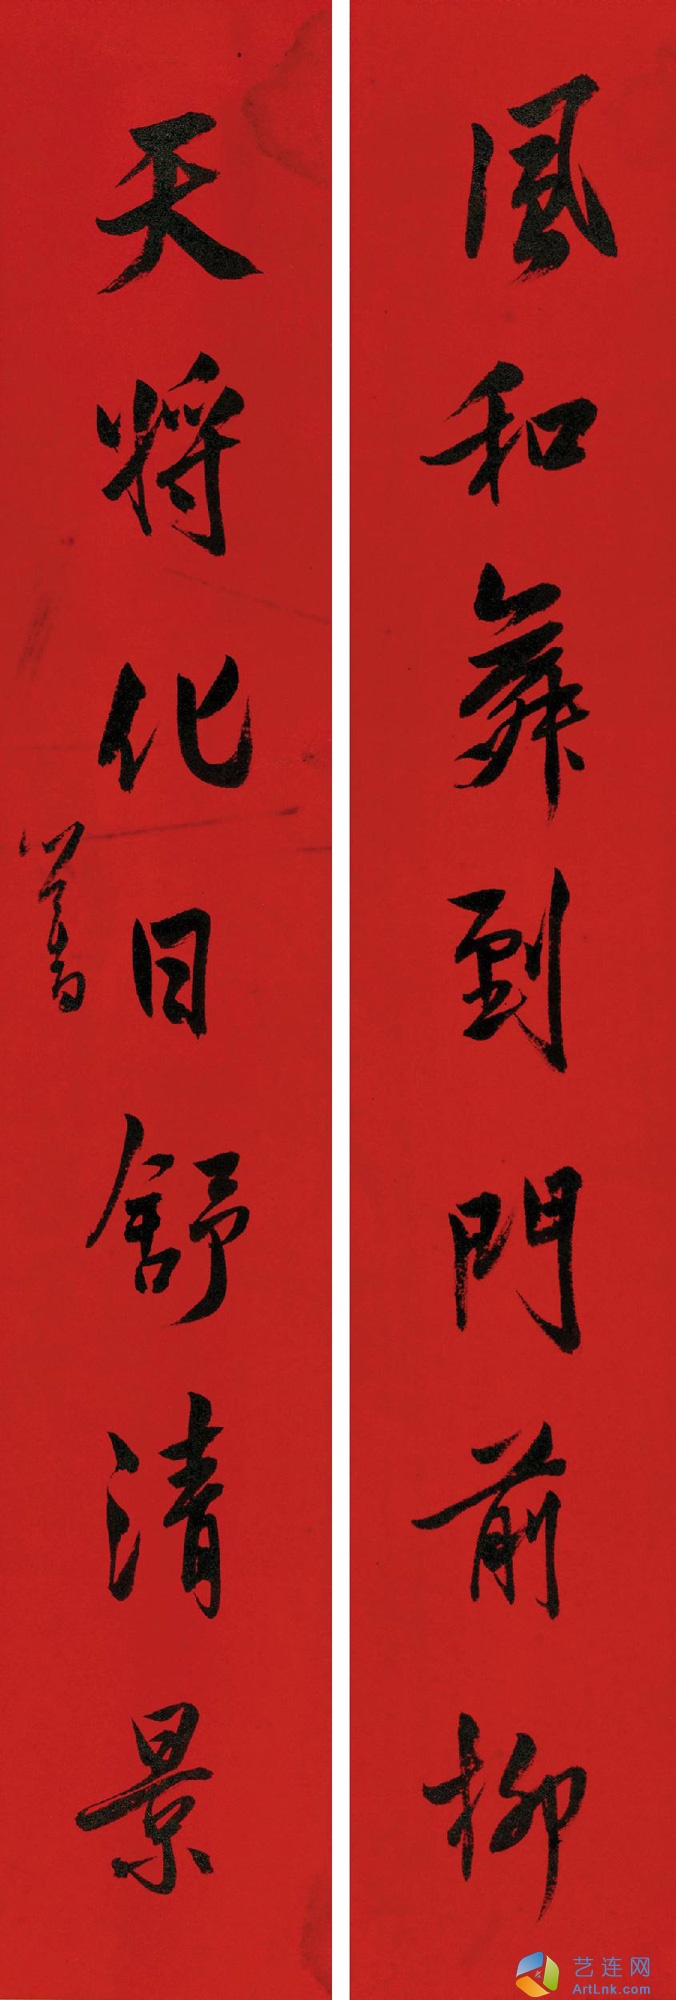 風和舞到門前柳
天將化日舒清景
心畬
艺连网
ArtLnk.com